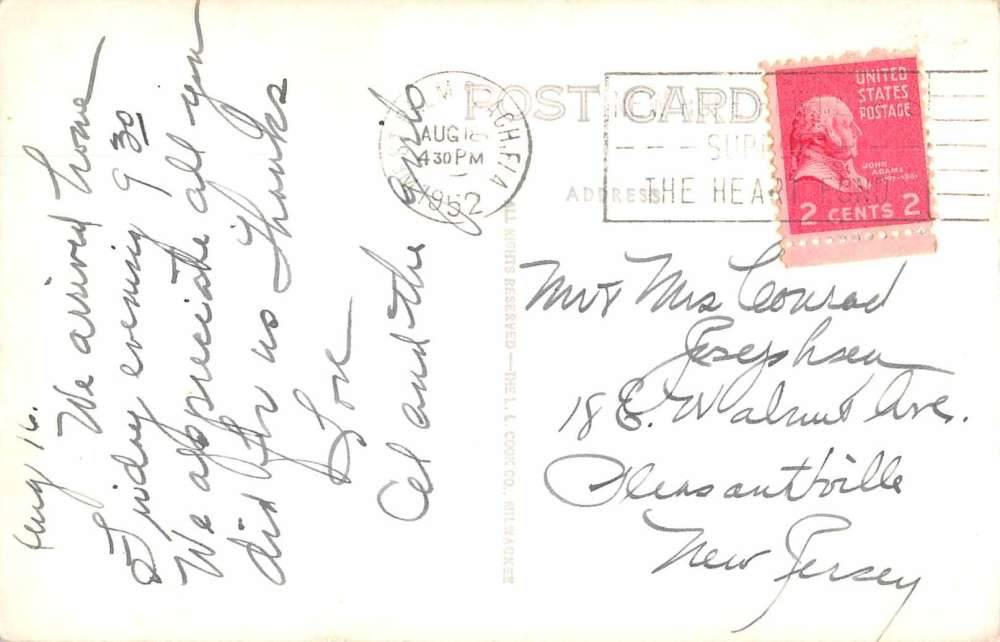 Aug 16.
We arrived home
Friday evening 9 30
We appreciate all you
did for us Thanks
Love
Al and the girls
POST CARD
ADDRESS
AUG 16
4 30 PM
1952
THE HEART FUND
UNITED
STATES
POSTAGE
JOHN
ADAMS
2 CENTS 2
ALL RIGHTS RESERVED—THE L. L. COOK CO., MILWAUKEE
Mr & Mrs Conrad
Josephsen
18 E. Walnut Ave.
Pleasantville
New Jersey